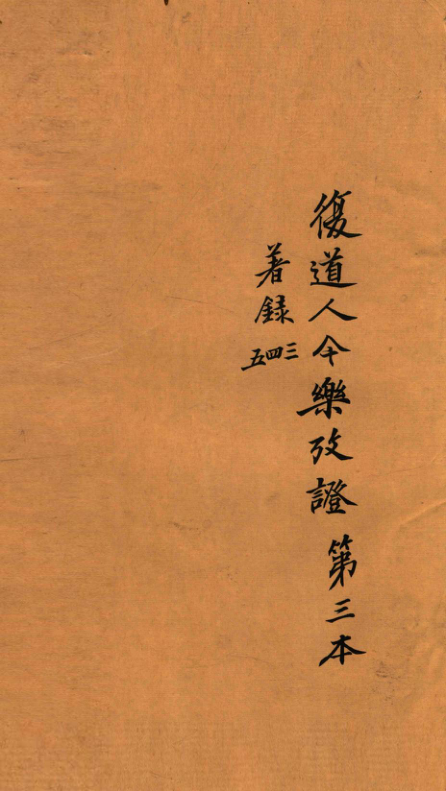 復道人今樂攷證 第三本
著錄 三四五